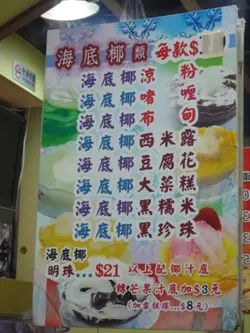 海底椰類 每款$
海底椰涼粉
海底椰啫喱
海底椰布甸
海底椰西米露
海底椰豆腐花
海底椰大菜糕
海底椰黑糯米
海底椰黑珍珠
海底椰
明珠...$21
以上配椰汁底
轉芒果汁底加$3元
(加雪糕球...$8元)